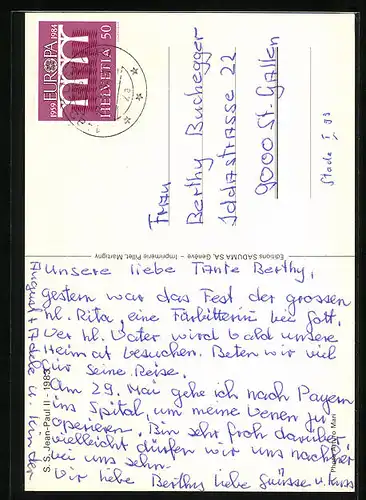 1959 EUROPA 1984
HELVETIA 50
Frau
Berthy Buchegger
Iddastrasse 22
9000 St. Gallen
Editions SADUMA SA, Genève – Imprimerie Pillet, Martigny
Unsere liebe Tante Berthy,
gestern war das Fest der grossen
hl. Rita, eine Fürbitterin bei Gott.
Der hl. Vater wird bald unsere
Heimat besuchen. Beten wir viel
für seine Reise.
Am 29. Mai gehe ich nach Payern
ins Spital, um meine Venen zu
operieren. Bin sehr froh darüber
vielleicht dürfen wir uns nachher
bei uns sehn.
Wir liebe Berthy liebe Grüsse u. Kuss
August + Adele u. Kinder
S.S. Jean-Paul II - 1983